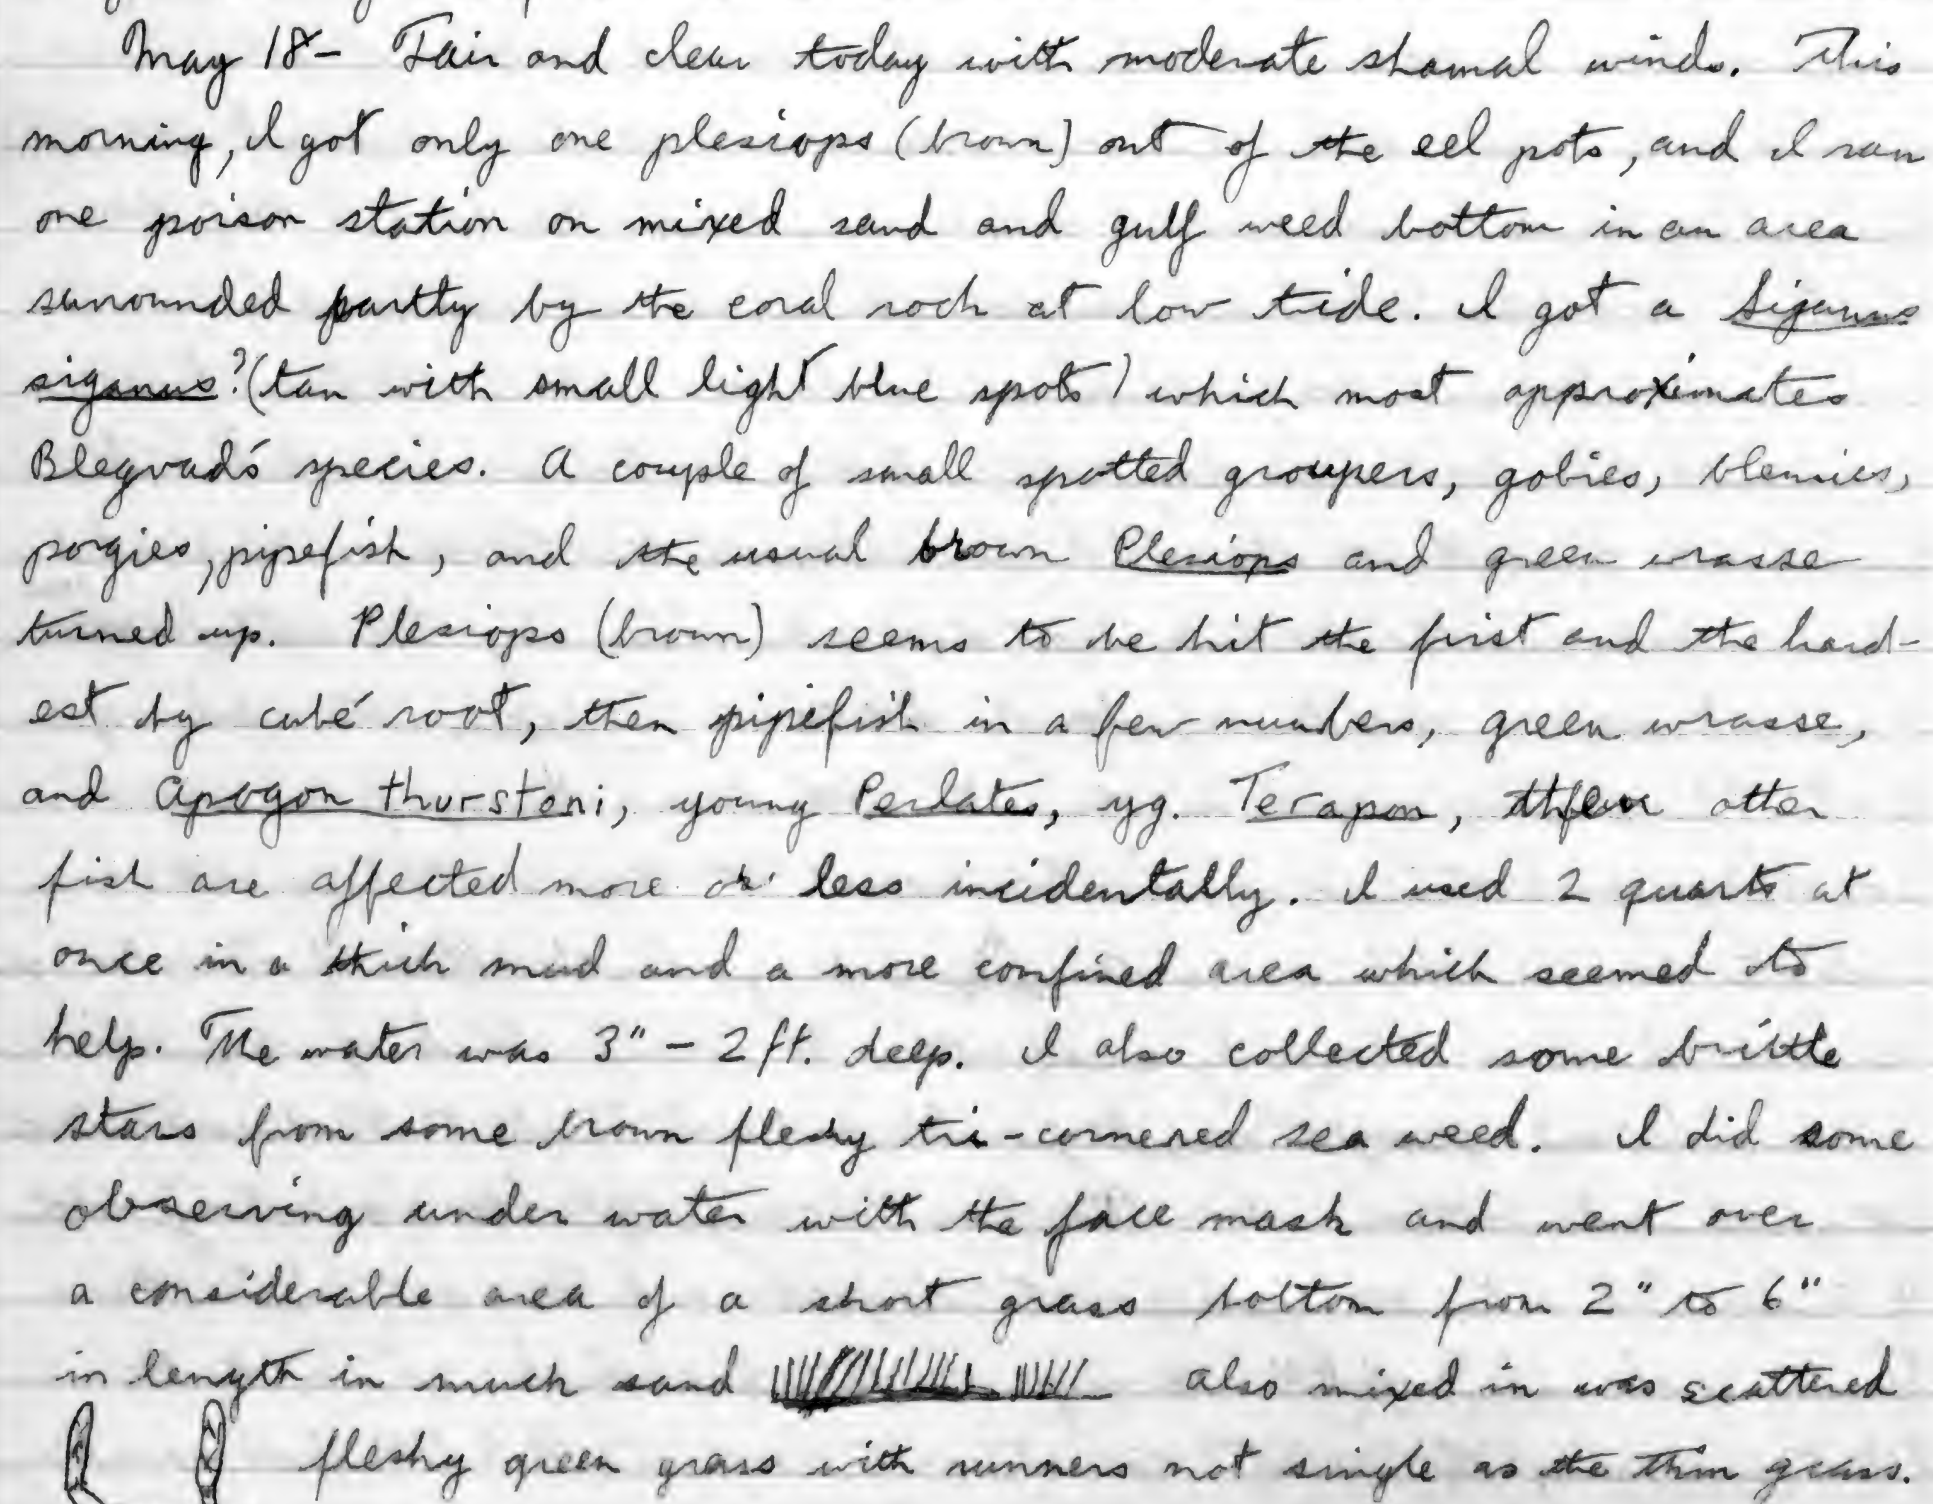 May 18- Fair and clear today with moderate shamal winds. This
morning, I got only one plesiops (brown) out of the eel pots, and I ran
one poison station on mixed sand and gulf weed bottom in an area
surrounded partly by the coral rock at low tide. I got a Siganus
siganus? (tan with small light blue spots) which most approximates
Blegvad's species. A couple of small spotted groupers, gobies, blennies,
porgies, pipefish, and the usual brown Plesiops and green wrasse
turned up. Plesiops (brown) seems to be hit the first and the hard-
est by cubé root, then pipefish in a few numbers, green wrasse,
and Apogon thurstoni, young Perlates, yg. Terapon, other
fish are affected more or less incidentally. I used 2 quarts at
once in a thick mud and a more confined area which seemed to
help. The water was 3" - 2 ft. deep. I also collected some brittle
stars from some brown fleshy tri-cornered sea weed. I did some
observing under water with the face mask and went over
a considerable area of a short grass bottom from 2" to 6"
in length in much sand also mixed in was scattered
fleshy green grass with runners not single as the thin grass.